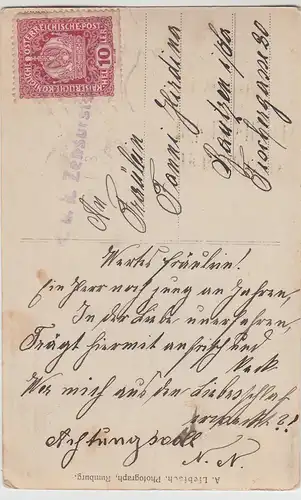 KAISERLICHE KÖN. ÖSTERREICHISCHE POST
10 HELLER 10
k. u. k. Zensurst
An
Fräulein
Fanni
Bautzen i/Sa
Fischergasse 30
Wertes Fräulein!
Ein Herr noch jung an Jahren,
In der Liebe unerfahren,
Frägt hiermit an frisch und
keck
Wer mich aus den Liebesschlaf
erweckt?!
Achtungsvoll
N. N.
A. Liebisch, Photograph, Rumburg.